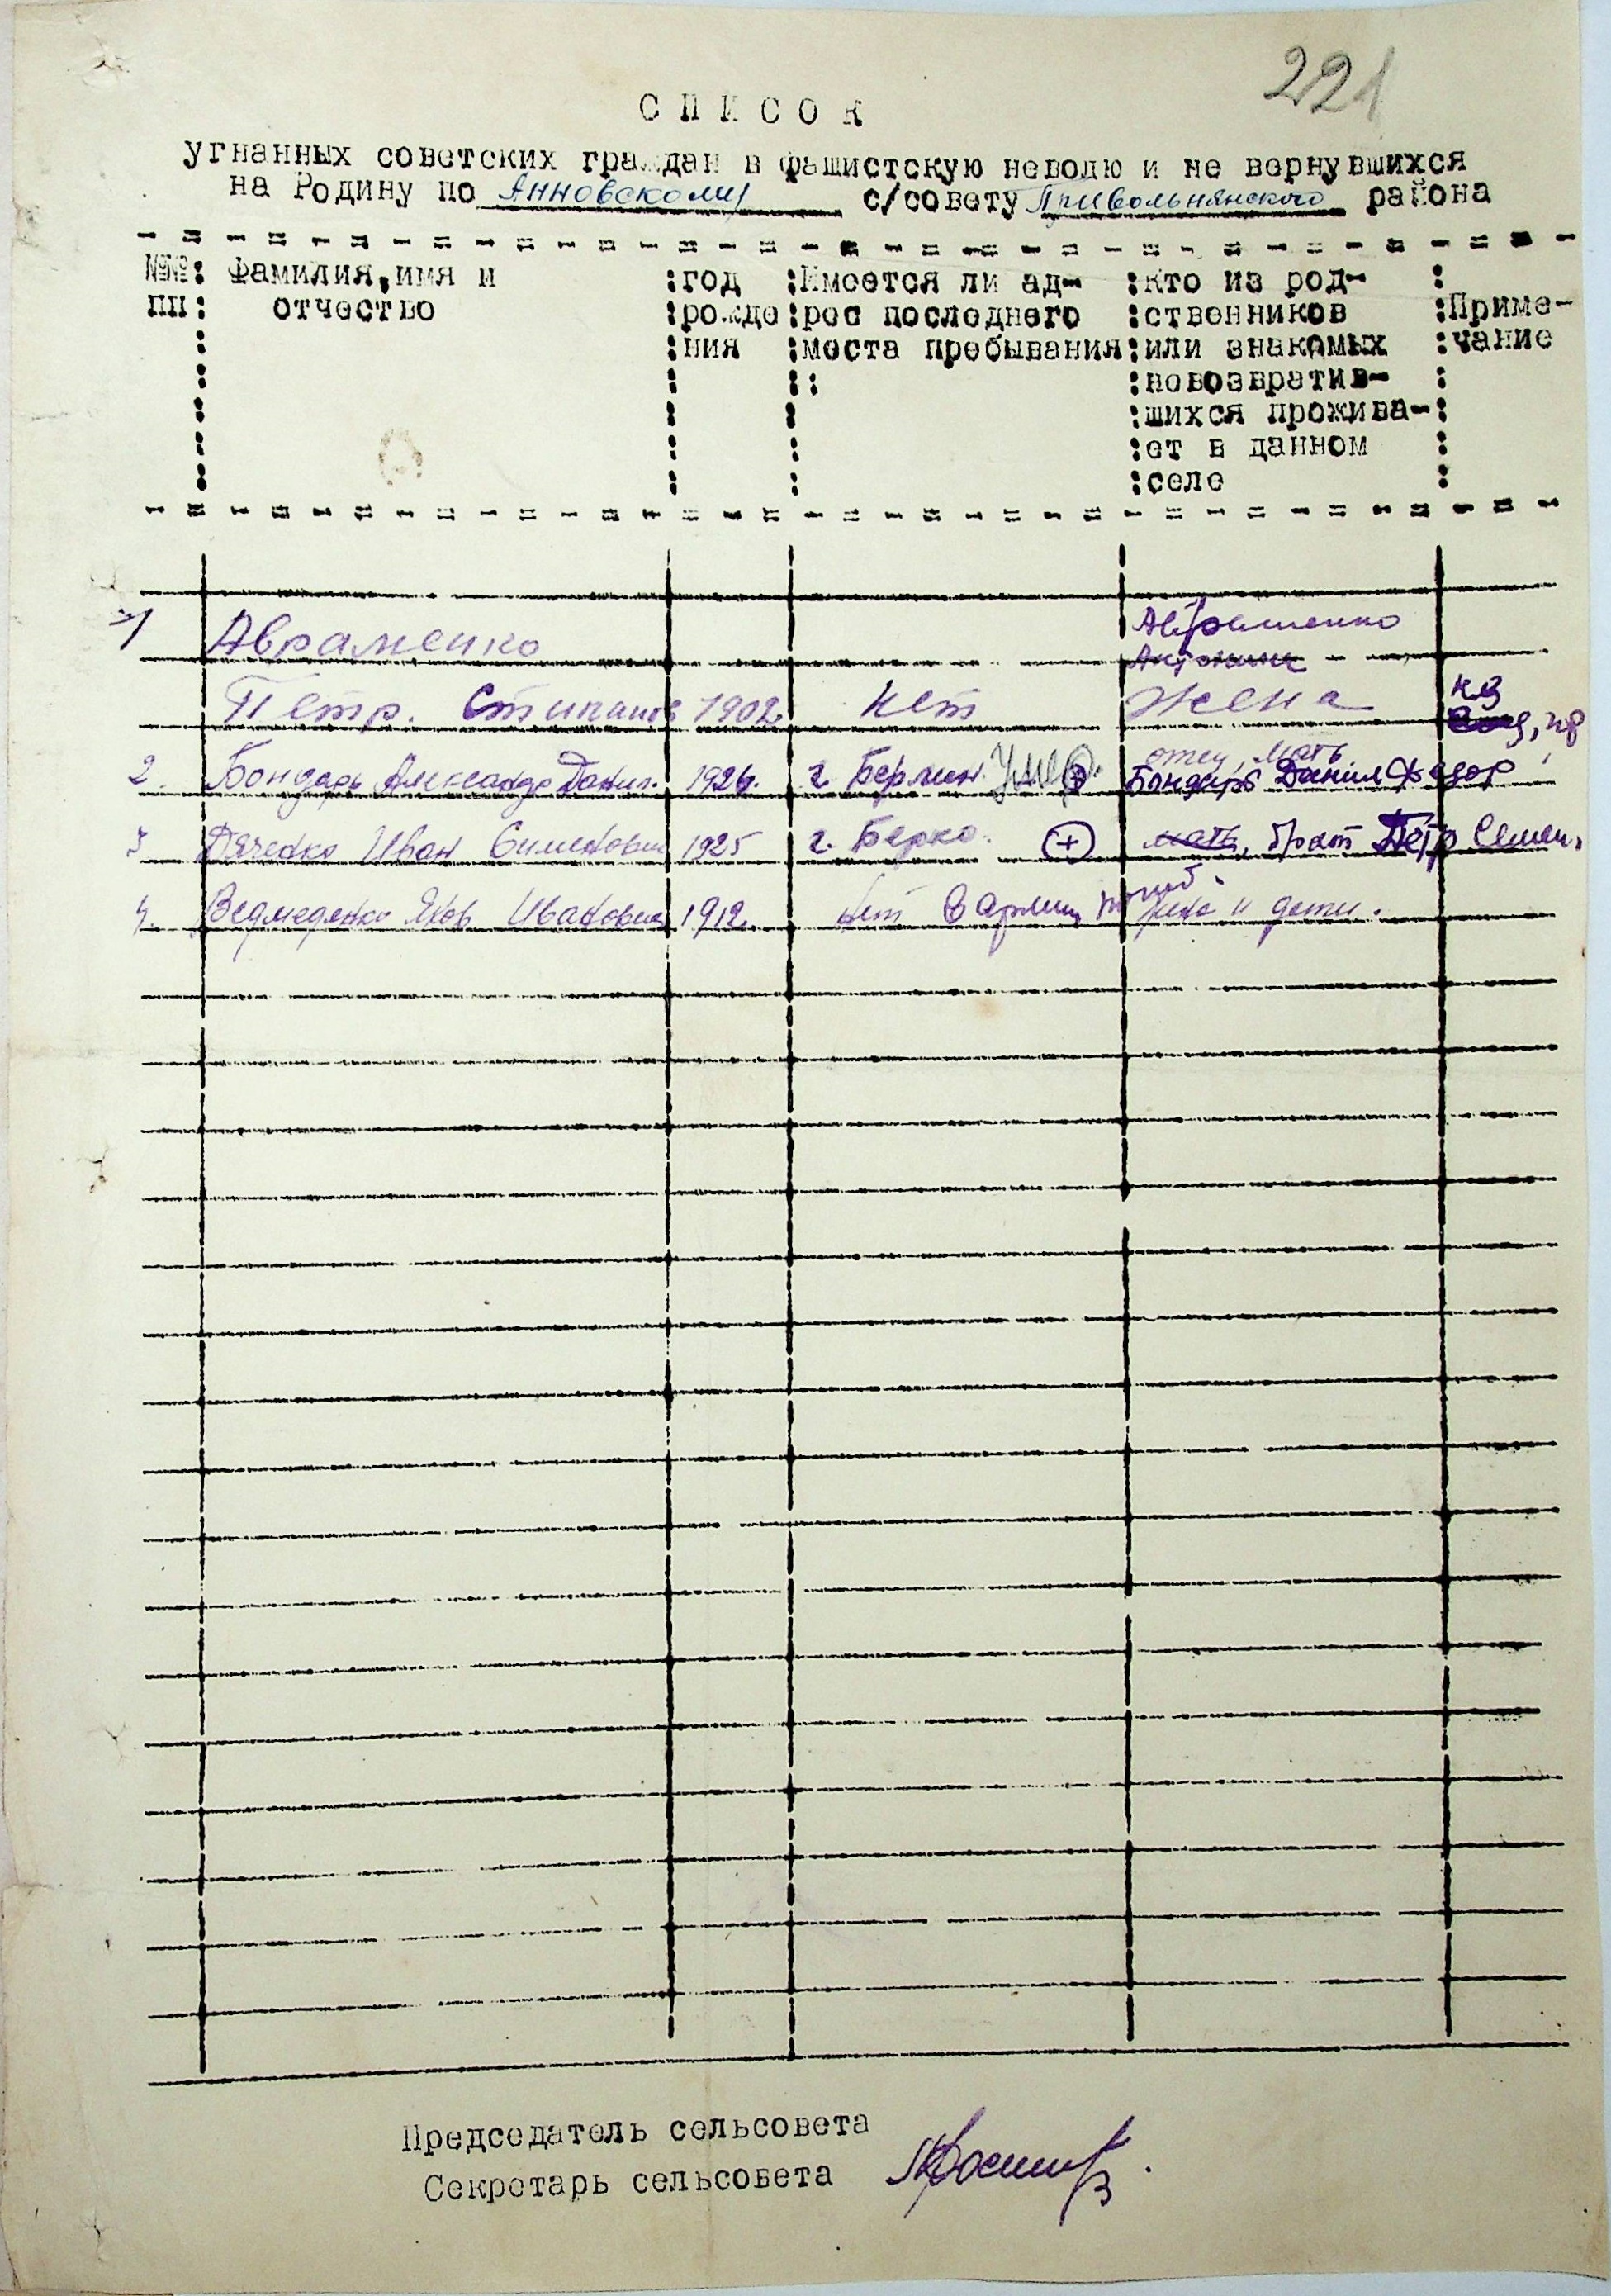 221
СПИСОК
угнанных советских граждан в фашистскую неволю и не вернувшихся
на Родину по Анновскому с/совету Привольнянского района
№№ пп : Фамилия, имя и отчество : год рожде ния : Имеется ли ад- рес последнего места пребывания : кто из род- ственников или знакомых невозвратив- шихся прожива- ет в данном селе : Приме- чание
1 Авраменко Авраменко
Антонина
Петр. Стипанов 1902 Нет Жена
отец, мать
2. Бондарь Александр Данил. 1924. г. Берлин. Умер. Бондарь Даніил Федор
3 Дяченко Иван Сименович 1925 г. Берко. + мать, брат Петр Семен.
4. Ведмеденко Яков Иванович 1912. Нет В армии погиб. жена и дети.
Председатель сельсовета
Секретарь сельсовета